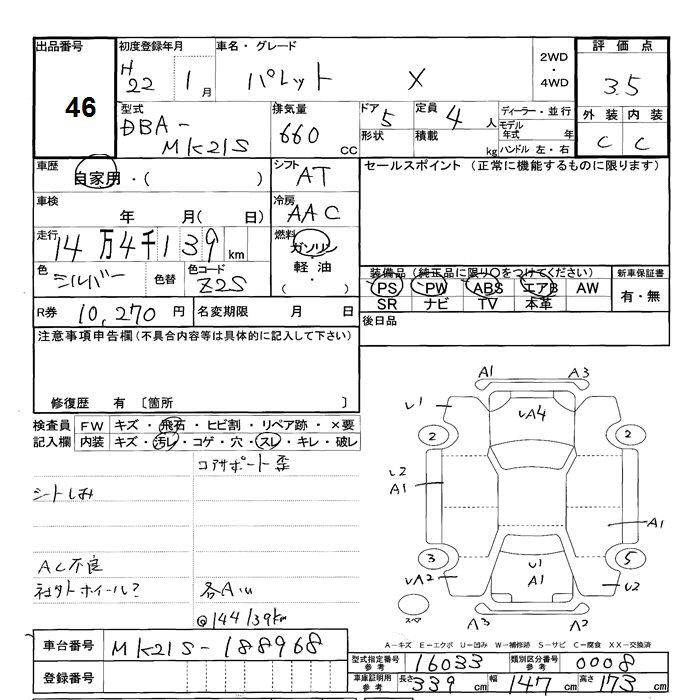 出品番号 46
初度登録年月 H22 1月
車名・グレード パレット X
2WD・4WD
評価点 3.5
型式 DBA-MK21S
排気量 660 CC
ドア 5
形状
定員 4人
積載 kg
ディーラー・並行
モデル年式 年
ハンドル 左・右
外装 C 内装 C
車歴 自家用・( )
シフト AT
セールスポイント (正常に機能するものに限ります)
車検 年 月( 日)
冷房 AAC
走行 14万4千139km
燃料 ガソリン・軽油・( )
色 シルバー 色替 色コード Z2S
装備品(純正品に限り○をつけてください)
PS PW ABS エアB AW
SR ナビ TV 本革
新車保証書 有・無
R券 10,270円 名変期限 月 日
後日品
注意事項申告欄(不具合内容等は具体的に記入して下さい)
修復歴 有 〔箇所 〕
検査員記入欄
FW キズ・飛石・ヒビ割・リペア跡・×要
内装 キズ・汚レ・コゲ・穴・スレ・キレ・破レ
コアサポート歪
シートしみ
AC不良
社外ホイール?
各Aい
@144139km
A1 A3
U1
UA4
2 2
U2
A1
A1
3 5
U1
A1
UA2
U2
スペア
A3 A2
A-キズ E-エクボ U-凹み W-補修跡 S-サビ C-腐食 XX-交換済
車台番号 MK21S-188968
型式指定番号 参考 16033 類別区分番号 参考 0008
登録番号
車庫証明用 参考 長さ 339cm 幅 147cm 高さ 173cm